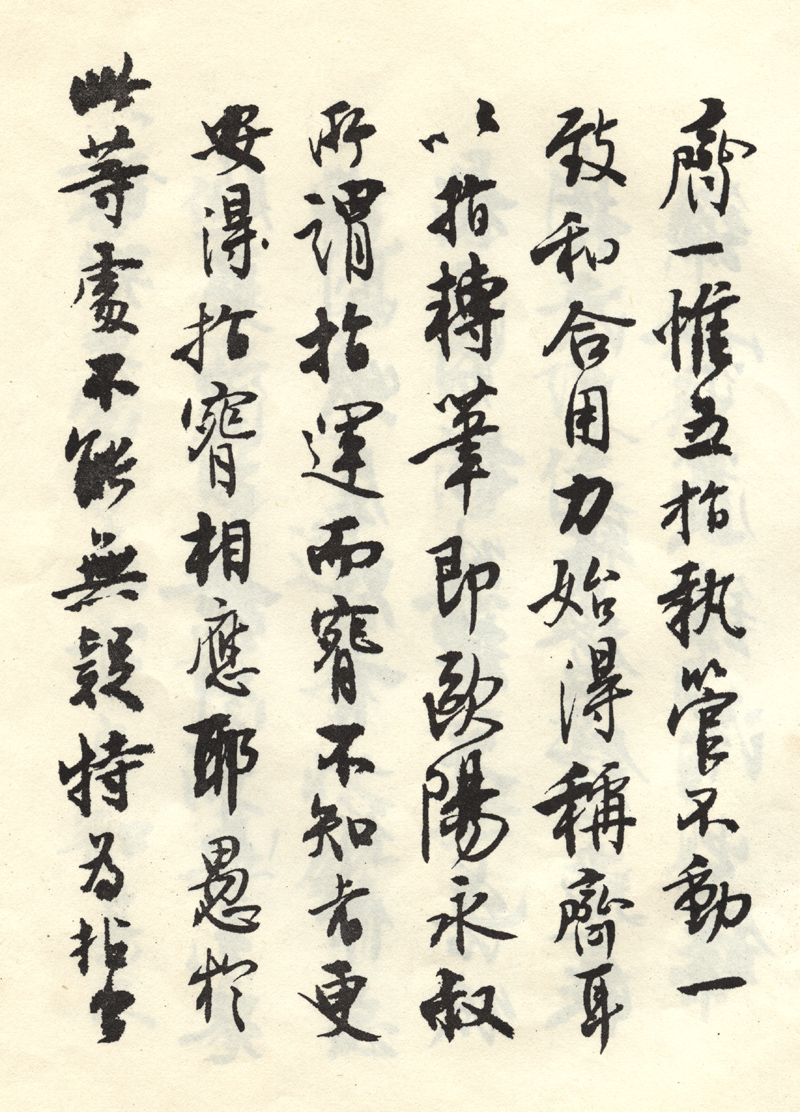 齊一惟五指執管不動一
致和合用力始得稱齊耳
以指轉筆即歐陽永叔
所謂指運而腕不知者更
安得指腕相應耶愚於
此等處不能無疑特為指出